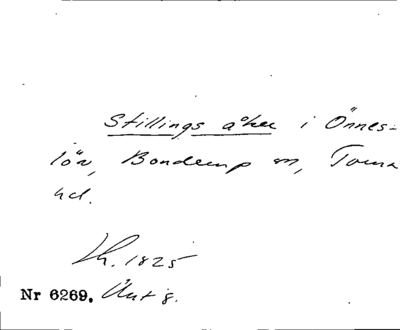 Stillings åker i Örnes-
löv, Bonderup sn, Torna
hd.
Lh. 1825
Nr 6269. Utg.